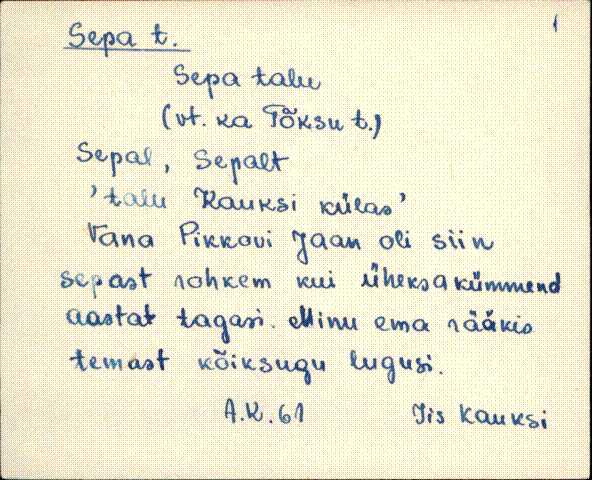 1
Sepa t.
Sepa talu
(vt. ka Tõksu t.)
Sepal, Sepalt
'talu Kauksi külas'
Vana Pikkovi Jaan oli siin
sepast rohkem kui üheksakümmend
aastat tagasi. Minu ema rääkis
temast kõiksugu lugusi.
A.K. 61 Iis Kauksi